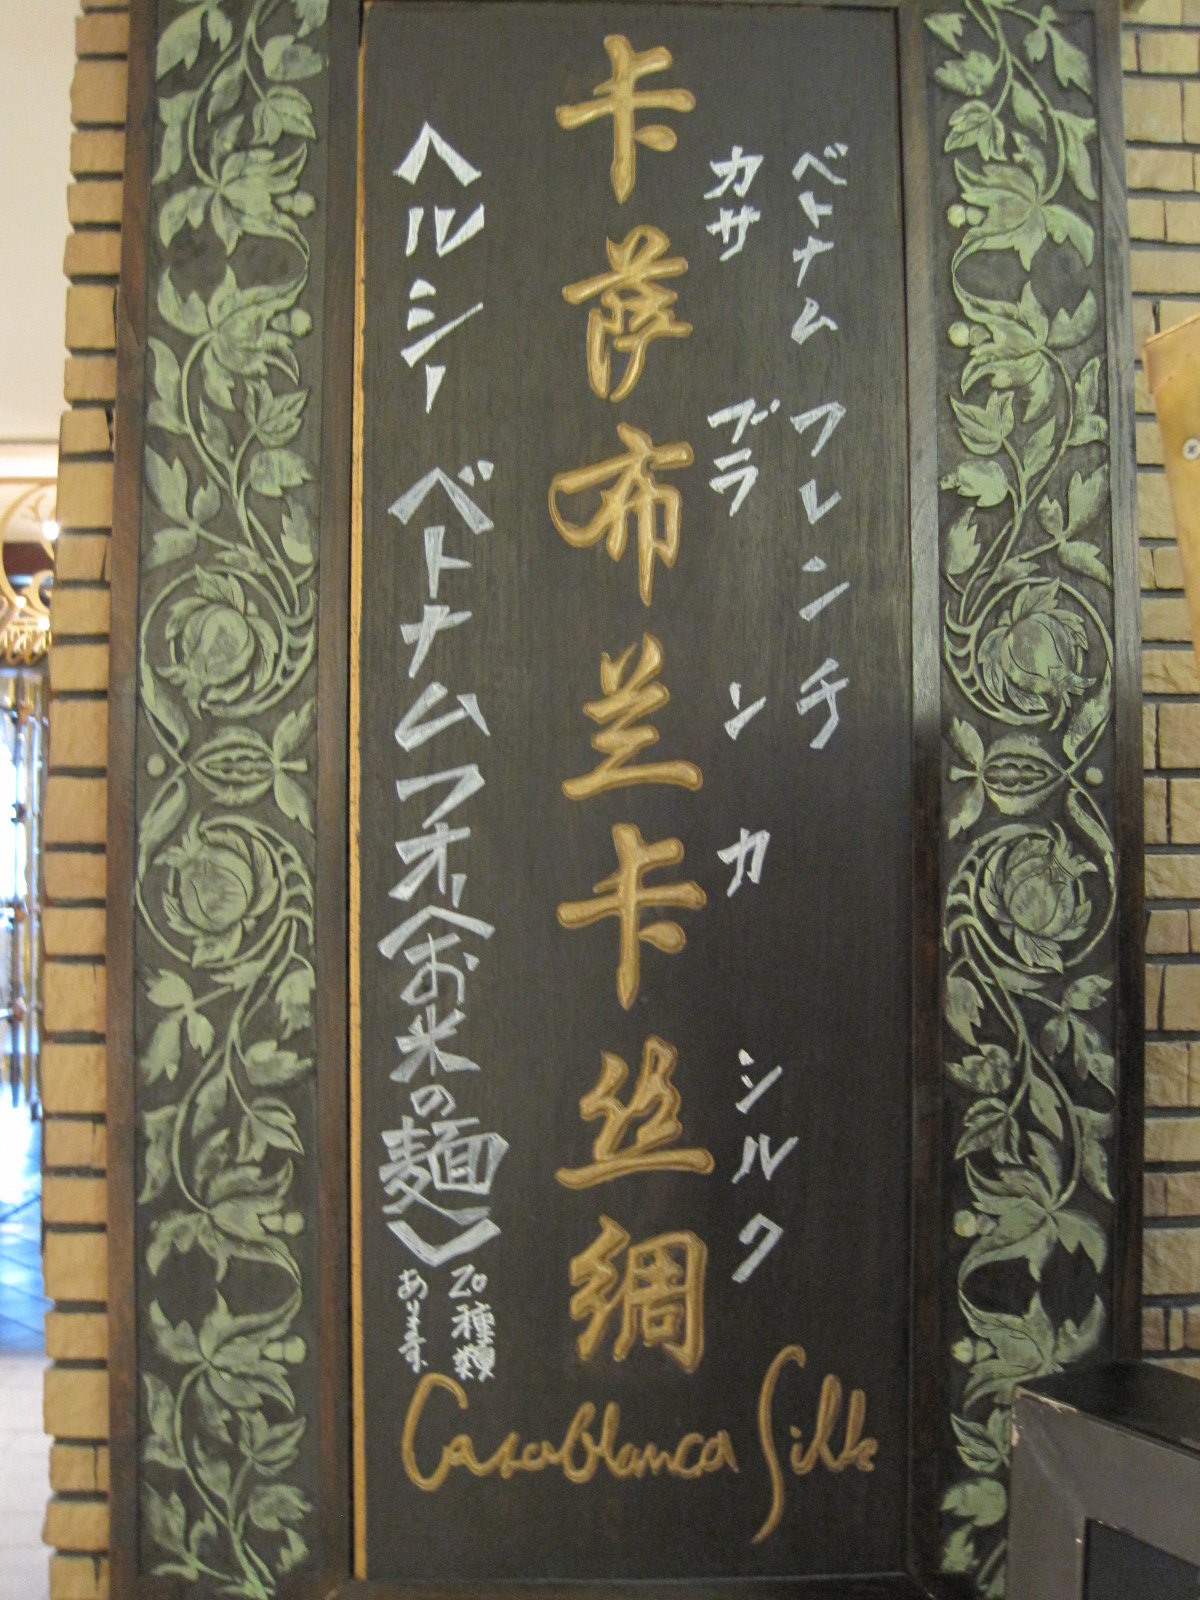 ベトナム フレンチ
カサ ブラ ン カ シルク
卡萨布兰卡丝绸
ヘルシー ベトナムフォー(お米の麺)
20種類
あります
Casablanca Silk